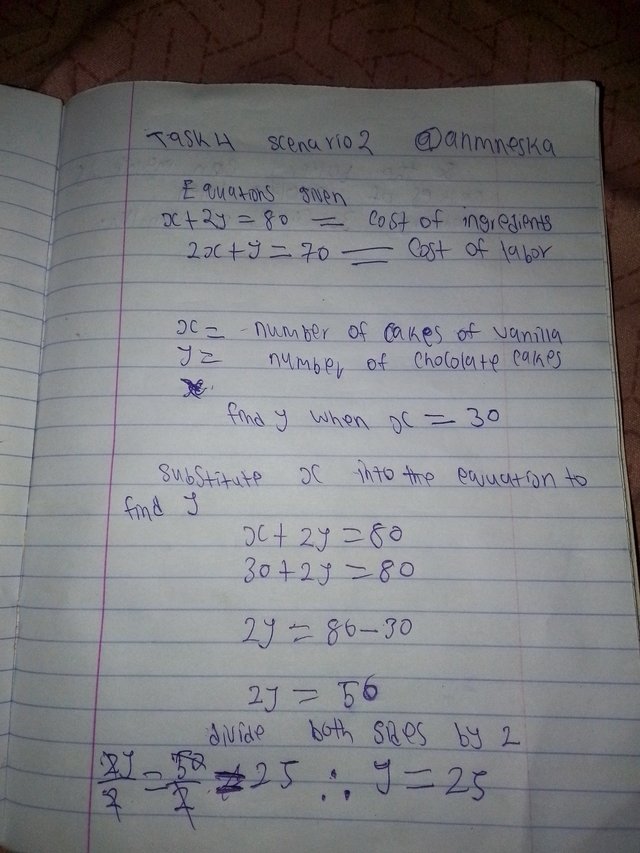 Task 4 scenario 2 @anmneska
Equations given
x+2y=80 = Cost of ingredients
2x+y=70 = Cost of labor
x= number of cakes of vanilla
y= number of chocolate cakes
find y when x = 30
substitute x into the equation to
find y
x+2y=80
30+2y=80
2y=80-30
2y=50
divide both sides by 2
2y/2 = 50/2 = 25 ∴ y=25